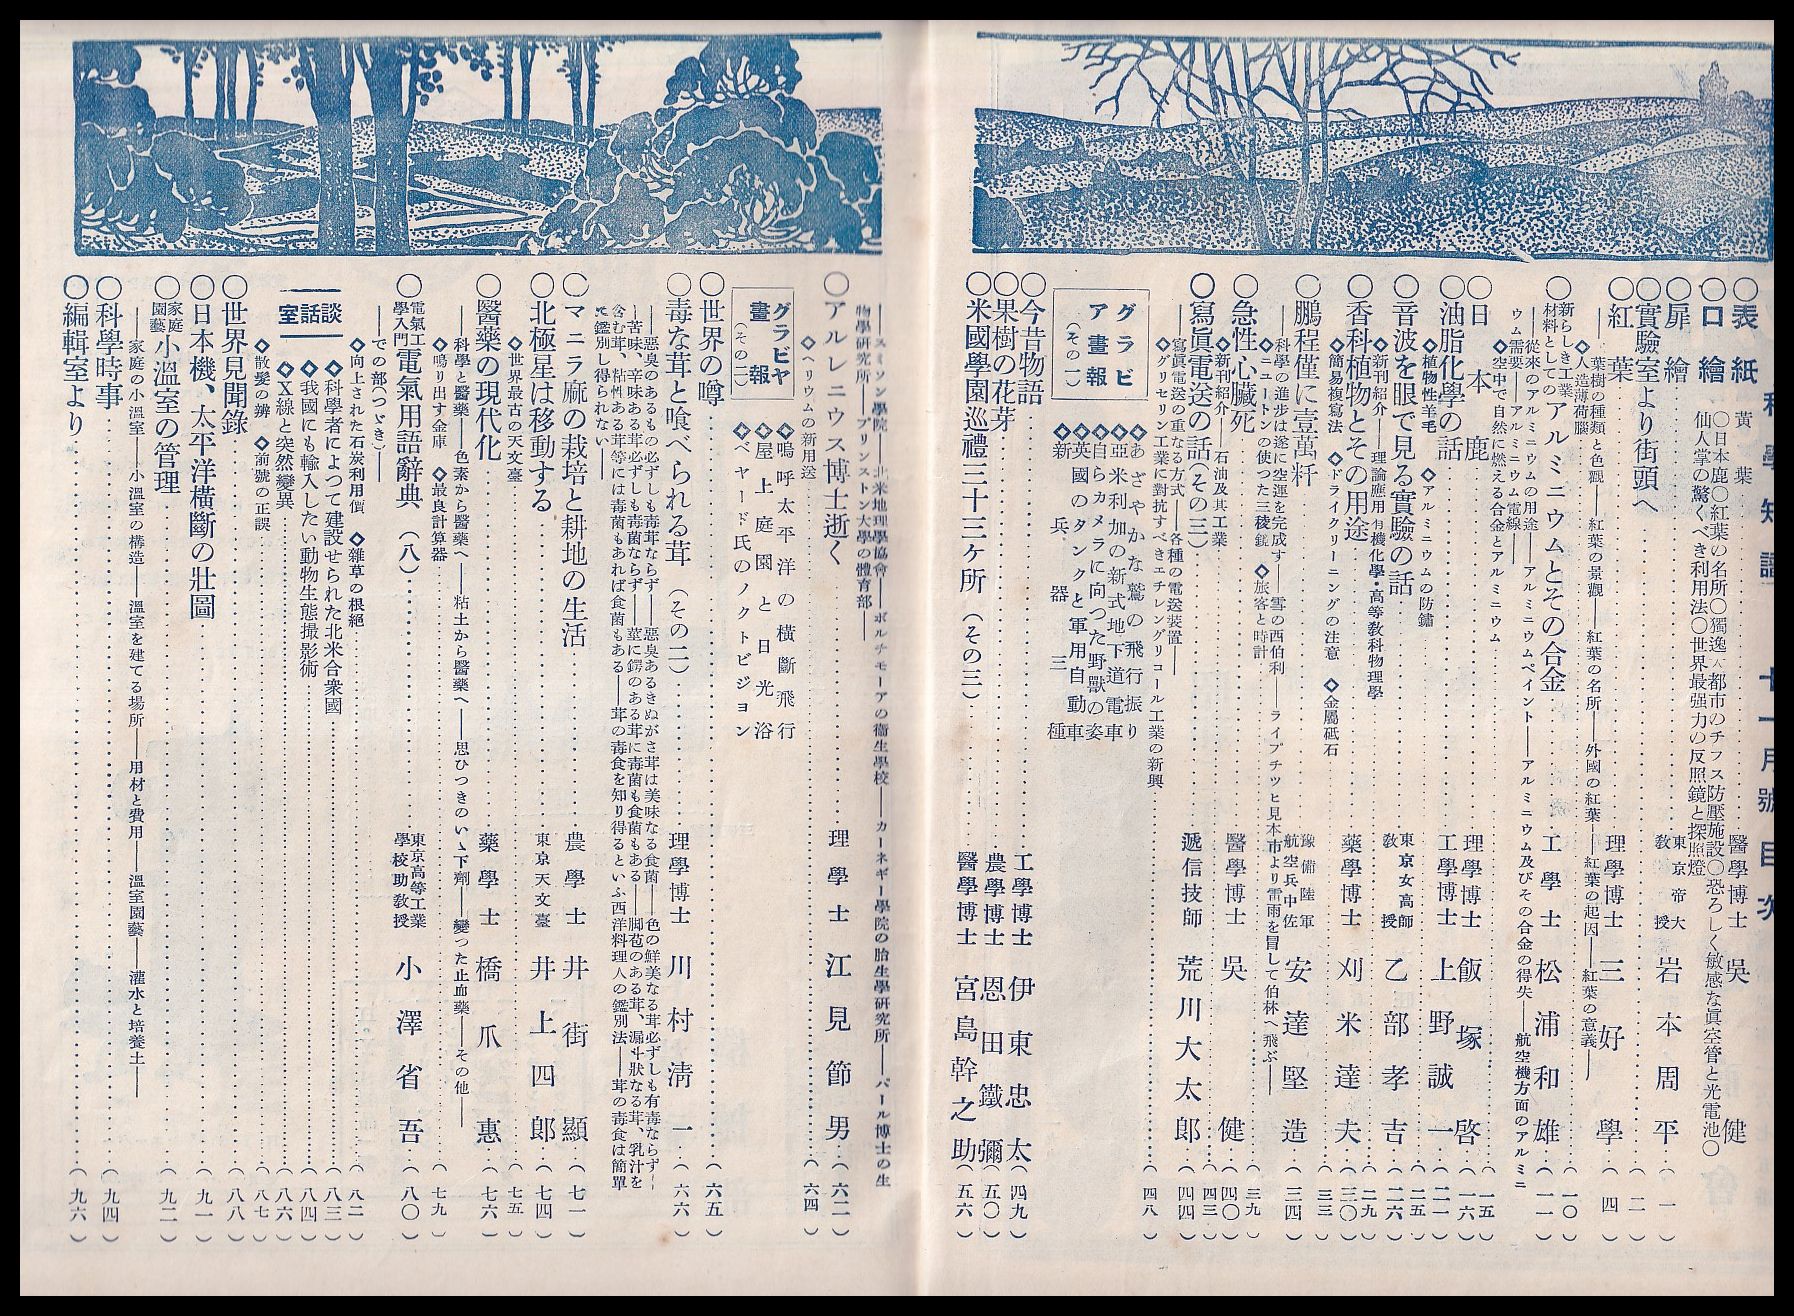 科學知識 十一月號目次
○表紙 黃葉 醫學博士 吳健
○口繪
○日本鹿○紅葉の名所○獨逸大都市のチフス防壓施設○恐ろしく敏感な眞空管と光電池○
仙人掌の驚くべき利用法○世界最强力の反照鏡と探照燈
○扉繪 東京帝大敎授 岩本周平 (一)
○實驗室より街頭へ (二)
○紅葉 理學博士 三好學 (四)
――葉樹の種類と色觀――紅葉の景觀――紅葉の名所――外國の紅葉――紅葉の起因――紅葉の意義――
◇人造薄荷腦 (一〇)
○新らしき工業材料としてのアルミニウムとその合金 工學士 松浦和雄 (一一)
――從來のアルミニウムの用途――アルミニウムペイント――アルミニウム及びその合金の得失――航空機方面のアルミニ
ウム需要――アルミニウム電線――
◇空中で自然に燃える合金とアルミニウム (一五)
○日本鹿 理學博士 飯塚啓 (一六)
○油脂化學の話 工學博士 上野誠一 (二一)
◇植物性羊毛 ◇アルミニウムの防銹 (二五)
○音波を眼で見る實驗の話 東京女高師敎授 乙部孝吉 (二六)
◇新刊紹介――理論應用有機化學・高等敎科物理學 (二九)
○香科植物とその用途 藥學博士 刈米達夫 (三〇)
◇簡易複寫法 ◇ドライクリーニングの注意 ◇金屬砥石 (三三)
○鵬程僅に壹萬粁 豫備陸軍航空兵中佐 安達堅造 (三四)
――科學の進步は遂に空運を完成す――雪の西伯利――ライプチツヒ見本市より雷雨を冒して伯林へ飛ぶ――
◇ニュートンの使つた三稜鏡 ◇旅客と時計 (三九)
○急性心臟死 醫學博士 吳健 (四〇)
◇新刊紹介――石油及其工業 (四三)
○寫眞電送の話(その三) 遞信技師 荒川大太郎 (四四)
――寫眞電送の重なる方式――各種の電送裝置――
◇グリセリン工業に對抗すべきエチレングリコール工業の新興 (四八)
グラビア畫報(その一)
◇あざやかな鷲の飛行振り
◇亞米利加の新式地下道電車
◇自らカメラに向つた野獸の姿
◇英國のタンクと軍用自動車
◇新兵器三種
○今昔物語 工學博士 伊東忠太 (四九)
○果樹の花芽 農學博士 恩田鐵彌 (五〇)
○米國學園巡禮三十三ケ所(その三) 醫學博士 宮島幹之助 (五六)
――スミソン學院――北米地理學協會――ボルチモーアの衞生學校――カーネギー學院の胎生學硏究所――パール博士の生
物學硏究所――プリンストン大學の體育部――
○アルレニウス博士逝く 理學士 江見節男 (六二)
◇ヘリウムの新用途 (六四)
グラビヤ畫報(その二)
◇嗚呼太平洋の橫斷飛行
◇屋上庭園と日光浴
◇ベヤード氏のノクトビジョン
○世界の噂 (六五)
○毒な茸と喰べられる茸(その二) 理學博士 川村淸一 (六六)
――惡臭のあるもの必ずしも毒茸ならず――惡臭あるきぬがさ茸は美味なる食菌――色の鮮美なる茸必ずしも有毒ならず――
――苦味、辛味ある茸必ずしも毒菌ならず――莖に鍔のある茸に毒菌も食菌もある――脚苞のある茸、漏斗狀なる茸、乳汁を
含む茸、粘性ある茸等には毒菌もあれば食菌もある――茸の毒食を知り得るといふ西洋料理人の鑑別法――茸の毒食は簡單
に鑑別し得られない――
○マニラ麻の栽培と耕地の生活 農學士 井街顯 (七一)
○北極星は移動する 東京天文臺 井上四郎 (七四)
◇世界最古の天文臺 (七五)
○醫藥の現代化 藥學士 橋爪惠 (七六)
――科學と醫藥――色素から醫藥へ――粘土から醫藥へ――思ひつきのいゝ下劑――變つた止血藥――その他――
◇鳴り出す金庫 ◇最良計算器 (七九)
○電氣工學入門 電氣用語辭典(八) 東京高等工業學校助敎授 小澤省吾 (八〇)
――での部(つゞき)――
◇向上された石炭利用價 ◇雜草の根絕 (八二)
談話室
◇科學者によつて建設せられた北米合衆國 (八三)
◇我國にも輸入したい動物生態撮影術 (八四)
◇X線と突然變異 (八六)
◇散髮の辨 ◇前號の正誤 (八七)
○世界見聞錄 (八八)
○日本機、太平洋橫斷の壯圖 (九一)
○家庭園藝 小溫室の管理 (九二)
――家庭の小溫室――小溫室の構造――溫室を建てる場所――用材と費用――溫室園藝――灌水と培養土――
○科學時事 (九四)
○編輯室より (九六)